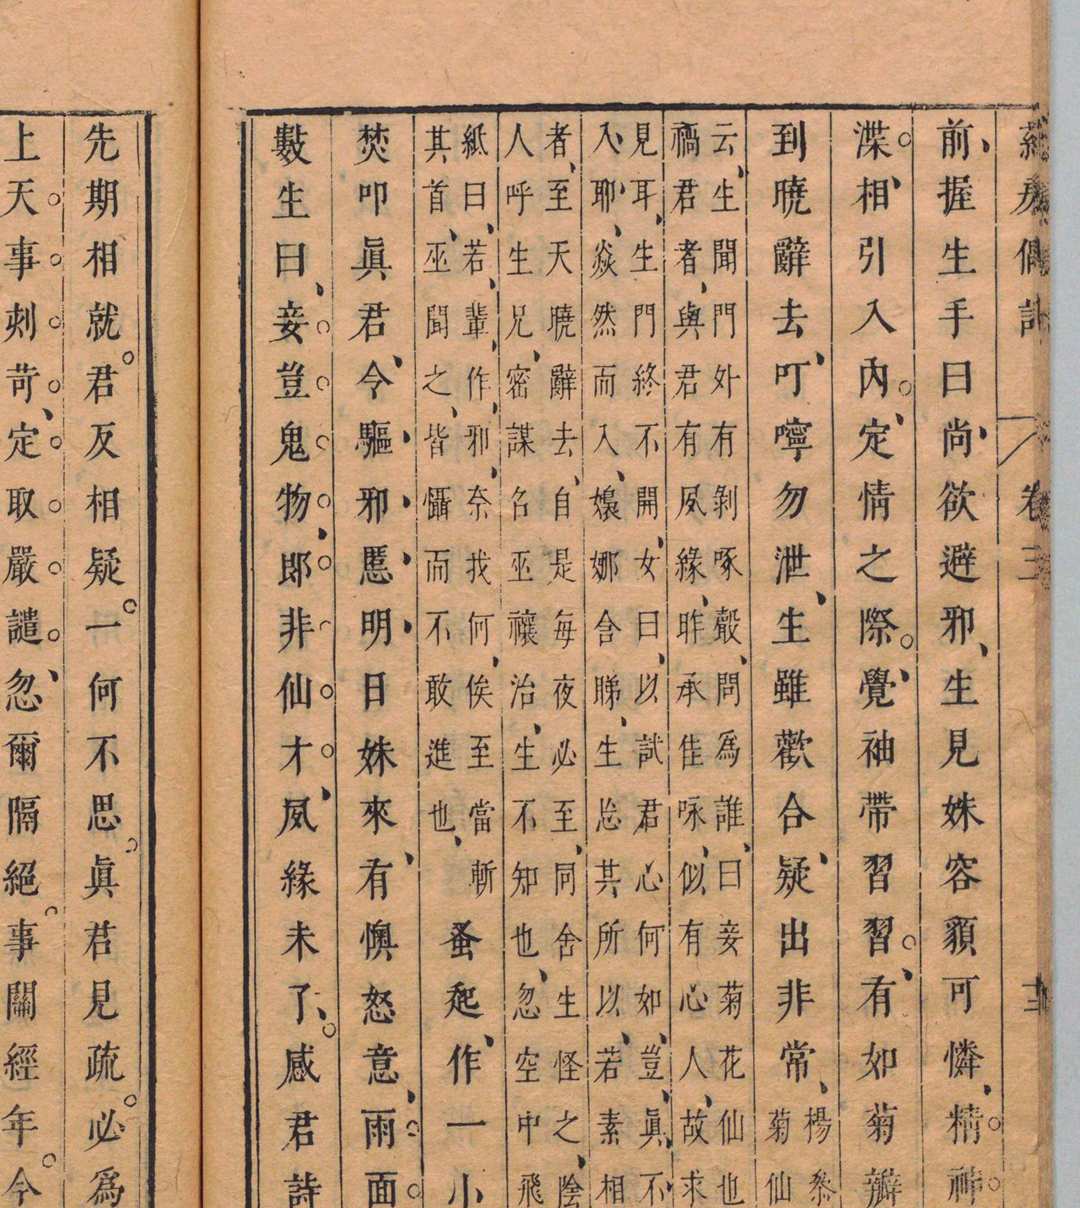 卷三
前、握生手曰、尚欲避邪、生見姝容顏可憐、精神
渫、相引入內、定情之際、覺袖帶習習、有如菊瓣
到曉辭去、叮嚀勿泄、生雖歡合、疑出非常、
楊黎
菊仙
云、生聞門外有剝啄聲、問爲誰、曰、妾菊花仙也
禍君者、與君有夙緣、昨承佳咏、似有心人、故求
見耳、生門終不開、女曰、以試君心何如、豈眞不
入耶、焱然而入、嬝娜含睇、生怂其所以、若素相
者、至天曉辭去、自是每夜必至、同舍生怪之、陰
人呼生兄、密謀名巫禳治、生不知也、忽空中飛
紙曰、若輩作邪、奈我何、俟至當斬
其首、巫聞之、皆懾而不敢進也、
蚤起、作一小
焚叩眞君、今驅邪慝、明日姝來、有懊怒意、雨面
數生曰、妾豈鬼物、郎非仙才、夙緣未了、感君詩
先期相就。君反相疑。一何不思。眞君見疏。必爲
上天事刺苛、定取嚴譴、忽爾隔絕。事關經年。今